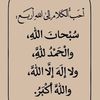 أحب الكلام إلى الله أربع،
سُبْحَانَ اللهِ،
وَالْحَمْدُ للهِ،
وَلا إِلَهَ إِلَّا اللهُ،
وَاللهُ أَكْبَرُ.